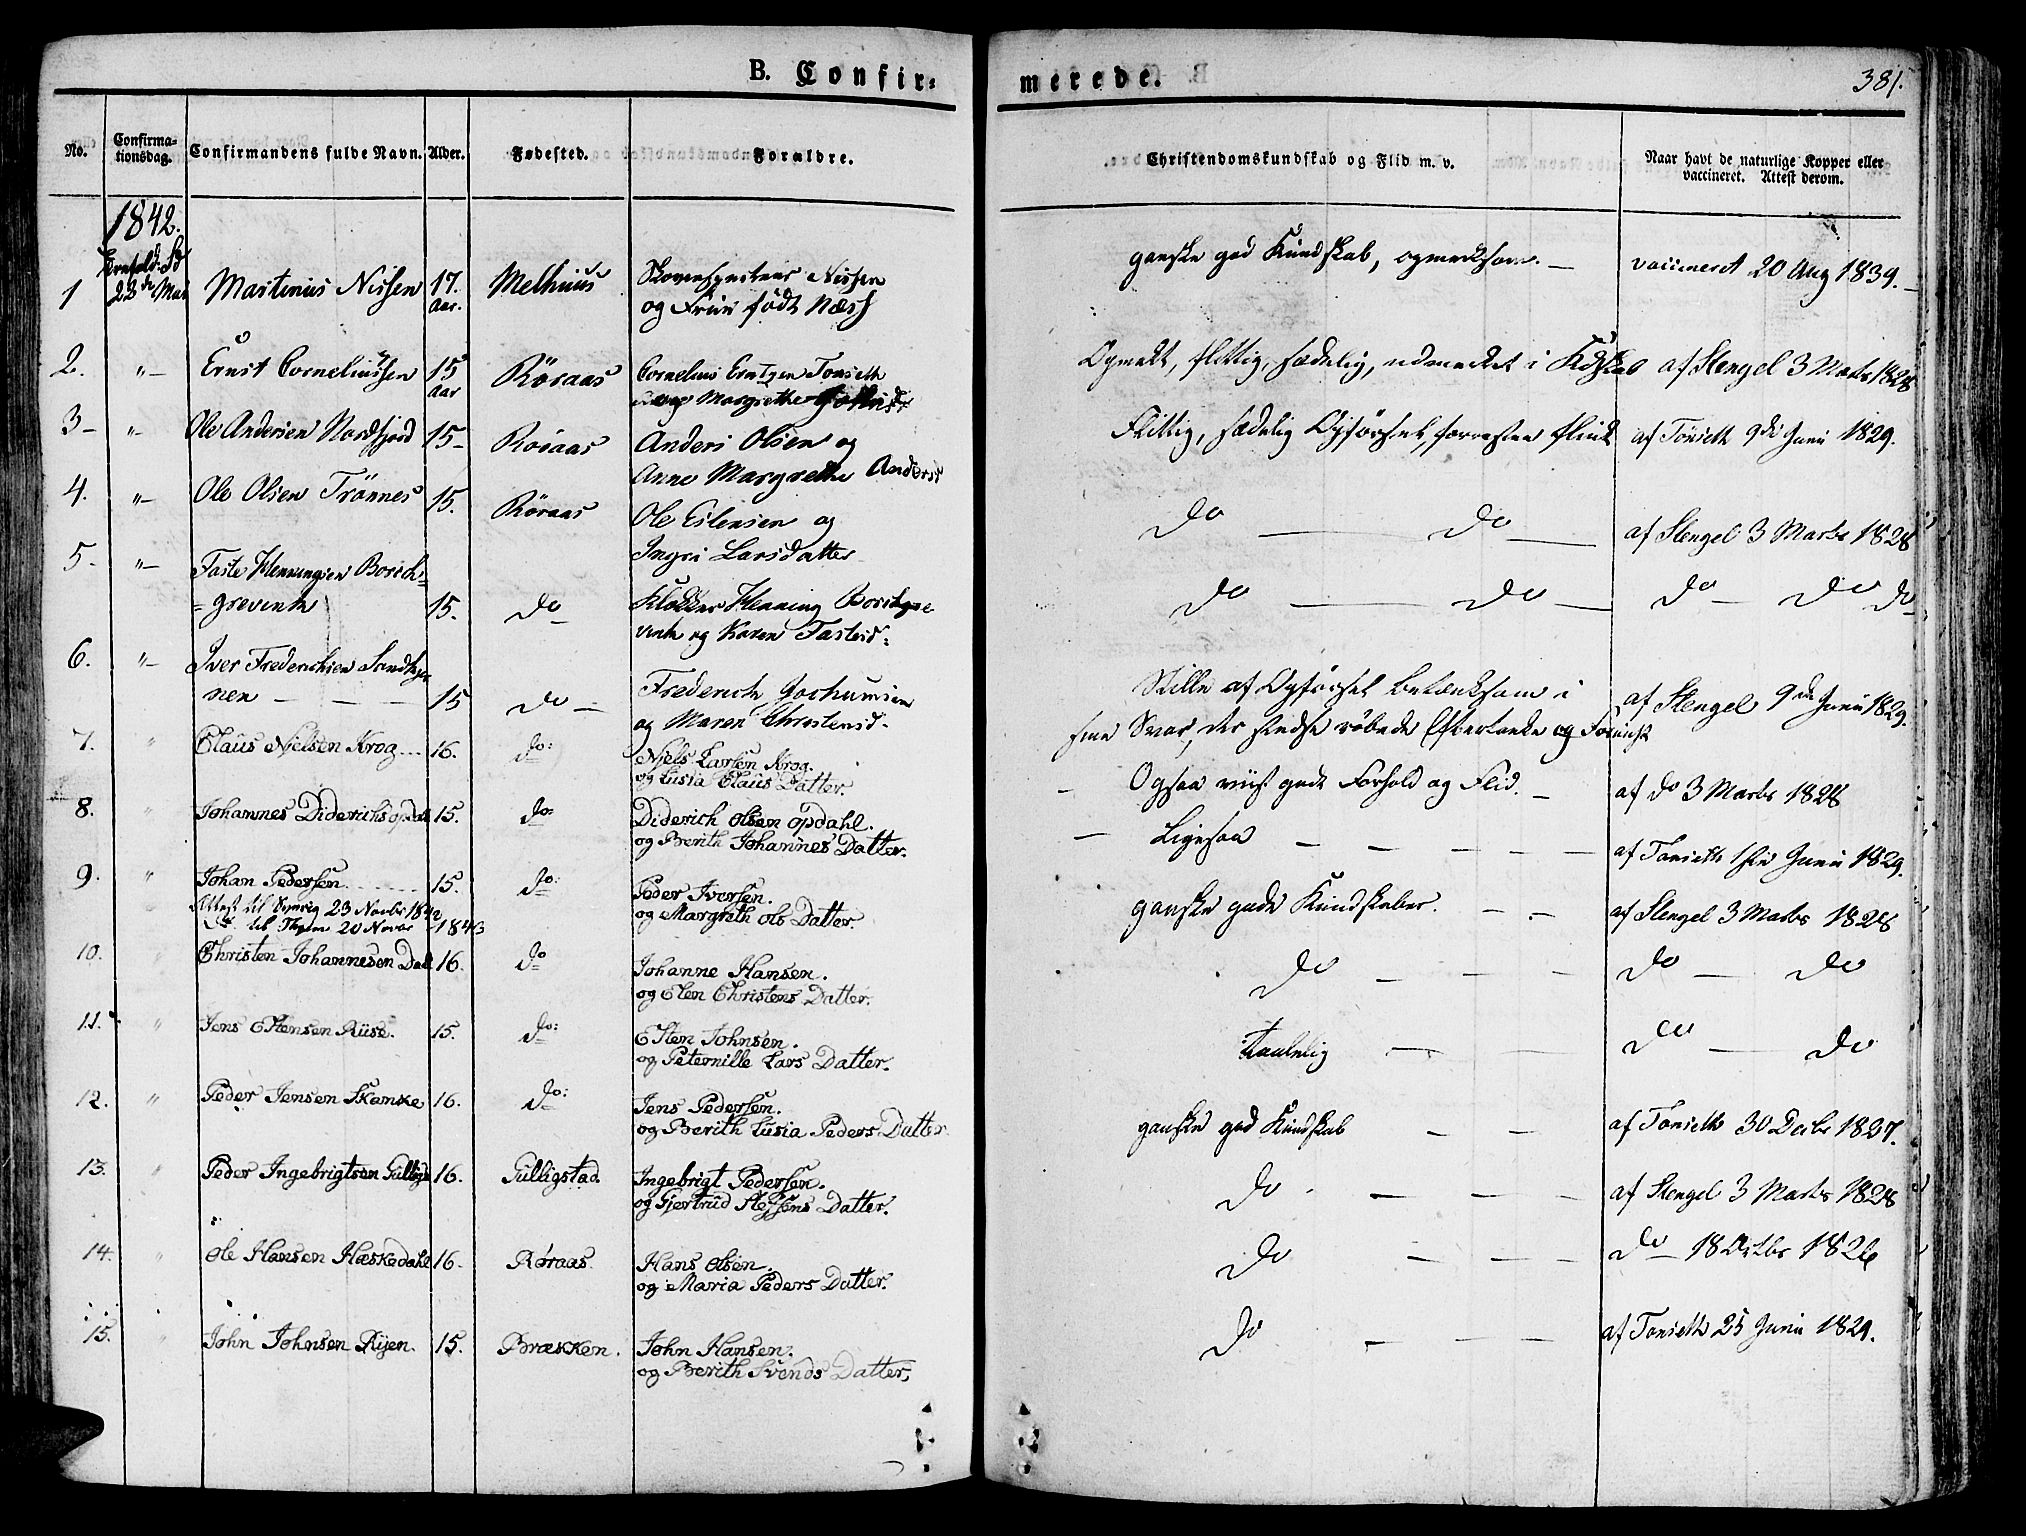 B. Confir=
merede.
381.
No.
Confirma-
tionsdag.
Confirmandens fulde Navn.
Alder.
Fødested.
Forældre.
Christendomskundskab og Flid m. v.
Naar havt de naturlige Kopper eller
vaccineret. Attest derom.
1842.
1 23de Martinus Nissen 17. Melhuus
Aar.
Nissen
og Frue født Næss
ganske god Kundskab, opmerksom. — vaccineret 20 Aug 1839. —
2. "— Ernst Corneliussen 15 Røraas Cornelius Tonseth
Aar
og Margrethe
flittig, sædelig, udmerket i af Stengel 3 Marts 1828
3— "— Ole Andersen Nordfjord 15— Røraas Anders Olsen og
Anne Margrethe Andersd
Flittig, sædelig Opførsel, forresten flink af Tonseth 9de Junii 1829.
4. "— Ole Olsen Trönnes 15. Röraas Ole Estensen og
Ingri Larsdatter
Do — Do — af Stengel 3 Marts 1828
5. "— Faste Henningsen Borch=
=grevink 15. Do — Klokker Henning Borchgre
vink og Karen Fastesd=
Do — Do — Do — Do Do
6. "— Iver Frederichsen
nen — — — 15 Do — Frederich Jochumsen
og Maren Christensd.
Stille af Opførsel betænksom i
sine Svar, der stedse røbede Eftertanke og
af Stengel 9de Junii 1829.
7. " Claus Nielsen Krog 16. do: Niels Larsen Krog.
og Lusia Claus Datter.
— Ogsaa viist godt Forhold og Flid. — af do 3 Marts 1828
8. " Johannes Diderichs opDal 15. do: Diderich Olsen opdahl.
og Berith Johannes Datter.
— Ligesaa — — — — — af Tonseth Junii 1829.
9. " Johan Pedersen 15. do: Peder Iversen.
og Margreth Ols Datter.
Attest til 23 Novbr 1842
til 20 1843
ganske gode Kundskaber. — — af Stengel 3 Marts 1828
10. " Christen Johannesen Dal 16. do Johanne Hansen.
og Elen Christens Datter.
Do — — — Do — Do
11. " Jens Estensen Riise. 15. do: Esten Johnsen.
og Peternille Lars Datter.
Taalelig — — Do — Do
12. " Peder Jensen Skamke 16. do: Jens Pedersen.
og Berith Lusia Peders Datter
ganske god Kundskab — — af Tonseth 30 Decbr 1827.
13. " Peder Ingebrigtsen 16. Gulligstad. Ingebrigt Pedersen.
og Gjertrud Steffens Datter.
Do — — — af Stengel 3 Marts 1828
14. " Ole Hansen Hæskedahl 16. Røraas. Hans Olsen.
og Maria Peders Datter.
Do — — — do — 18 Octbr 1826
15. " John Johnsen Ryen. 15. Bræsken. John Hansen.
og Berith Svends Datter,
Do — — — af Tonseth 25 Junii 1829.